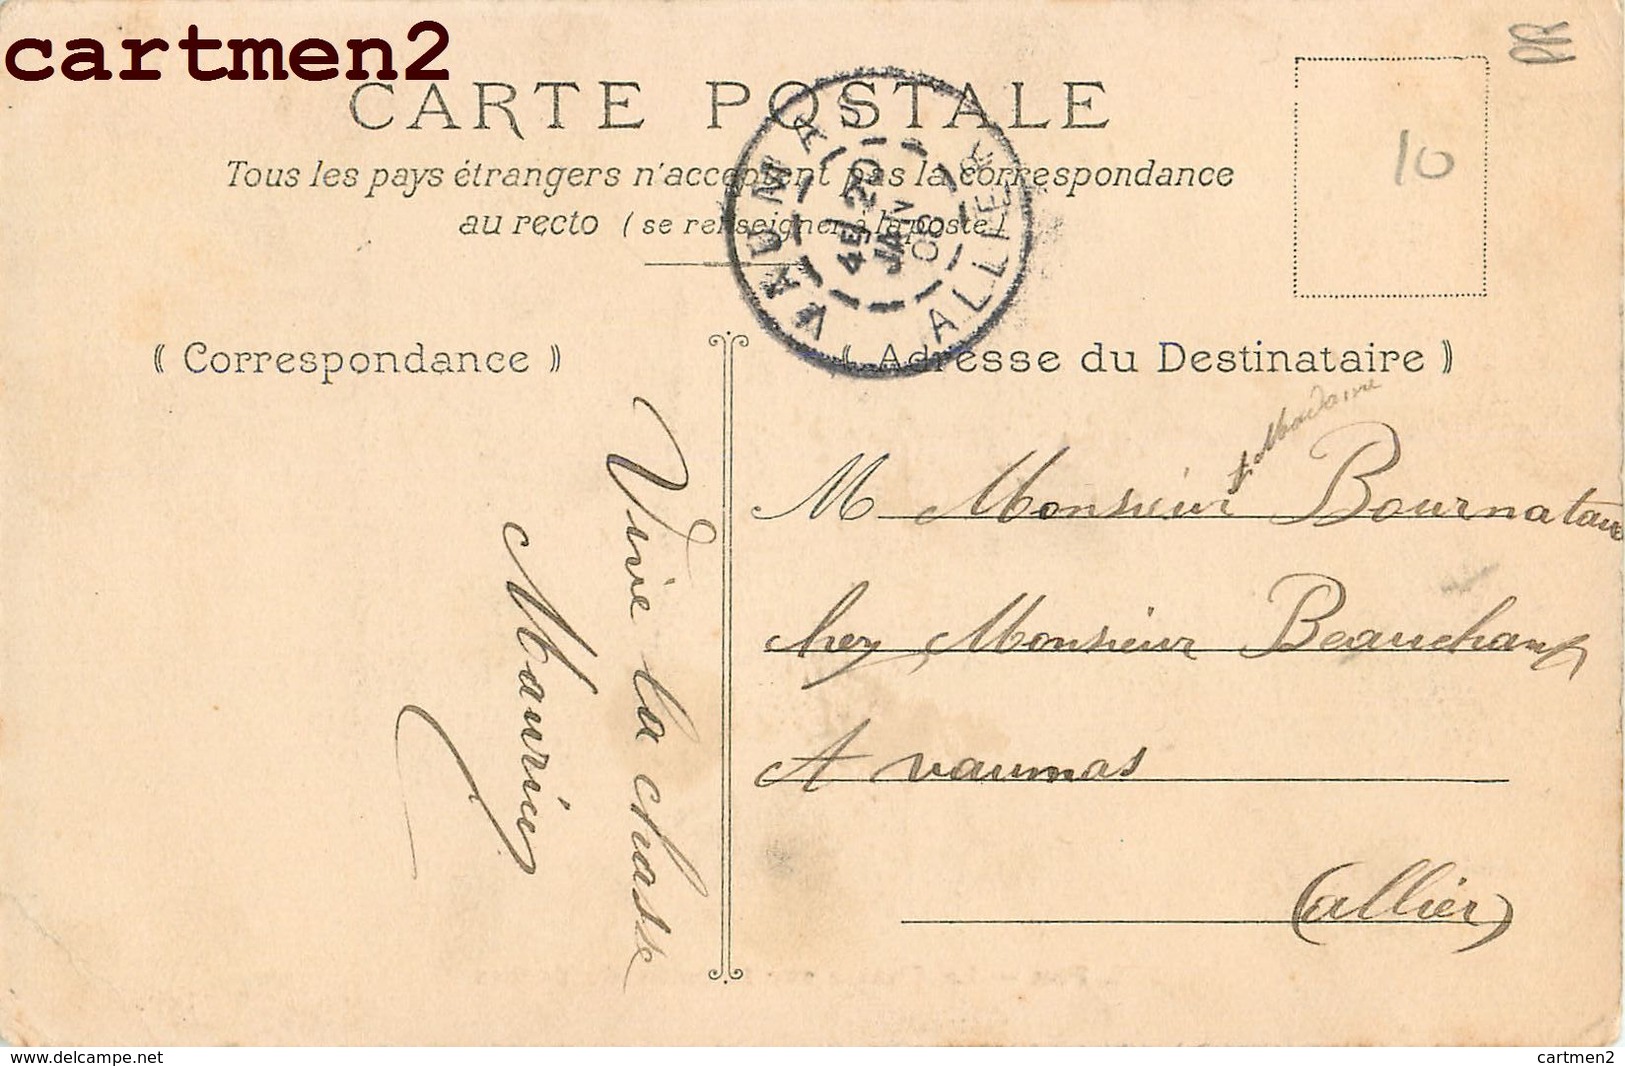 cartmen2
PR
CARTE POSTALE
10
Tous les pays étrangers n'acceptent pas la correspondance
au recto (se renseigner à la poste)
VAUMAS
4E 20
JANV
08
ALLIER
(Correspondance)
(Adresse du Destinataire)
Vive la chasse
Maurice
& Madame
M Monsieur Bournatau
chez Monsieur Beauchamp
A vaumas
(allier)
www.delcampe.net
cartmen2